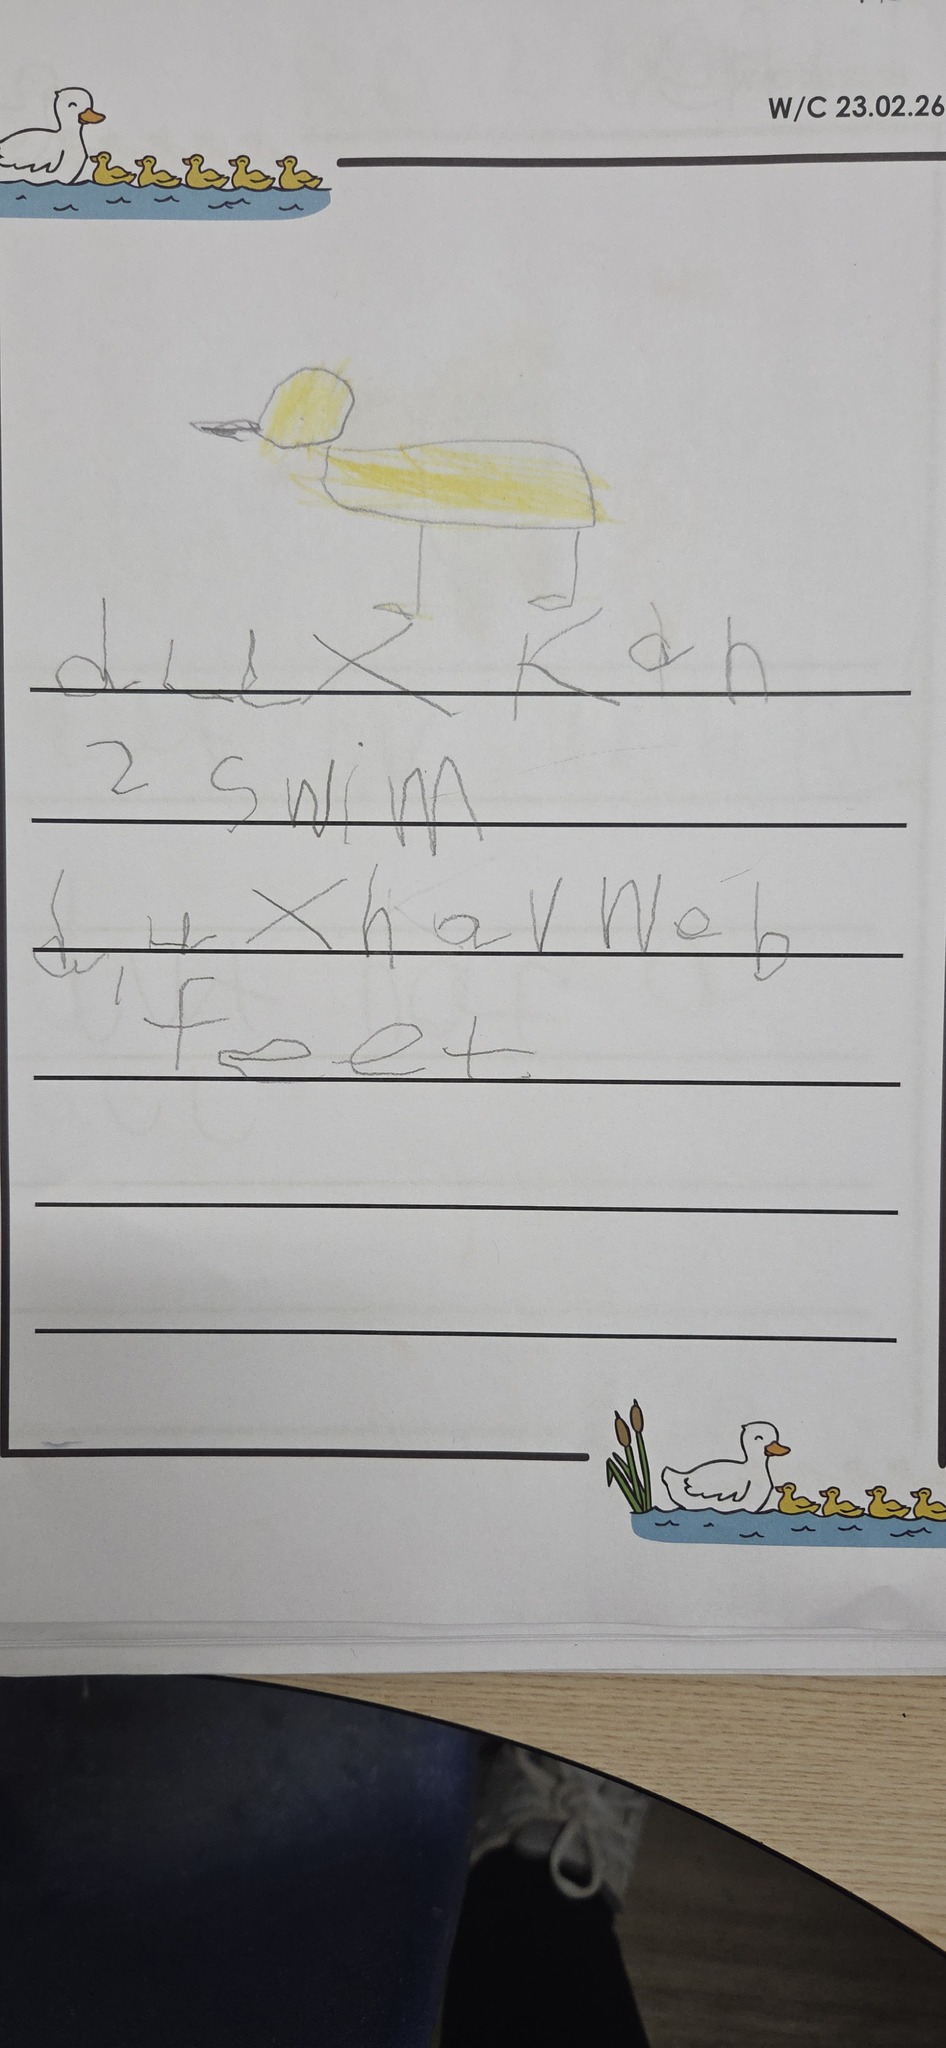 W/C 23.02.26
duux Kan
2 swim
dux hav Web
feet